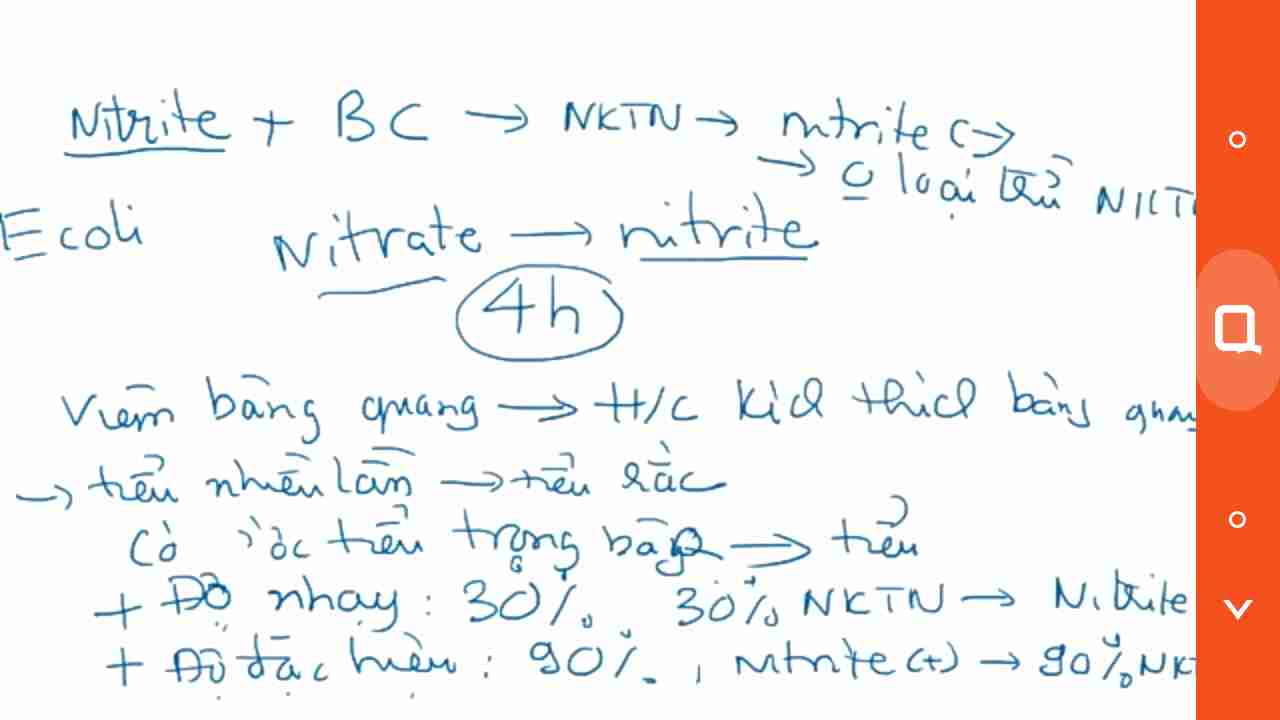 Nitrite + BC → NKTN → nitrite (-)
→ 0 loại trừ NKT
Ecoli Nitrate → nitrite
4h
Viêm bàng quang → H/C kích thích bàng quang
→ tiểu nhiều lần → tiểu rắc
Có ước tiểu trong bàng → tiểu
+ Độ nhạy: 30%. 30% NKTN → Nitrite
+ Độ đặc hiệu: 90%., nitrite (+) → 90% NKT